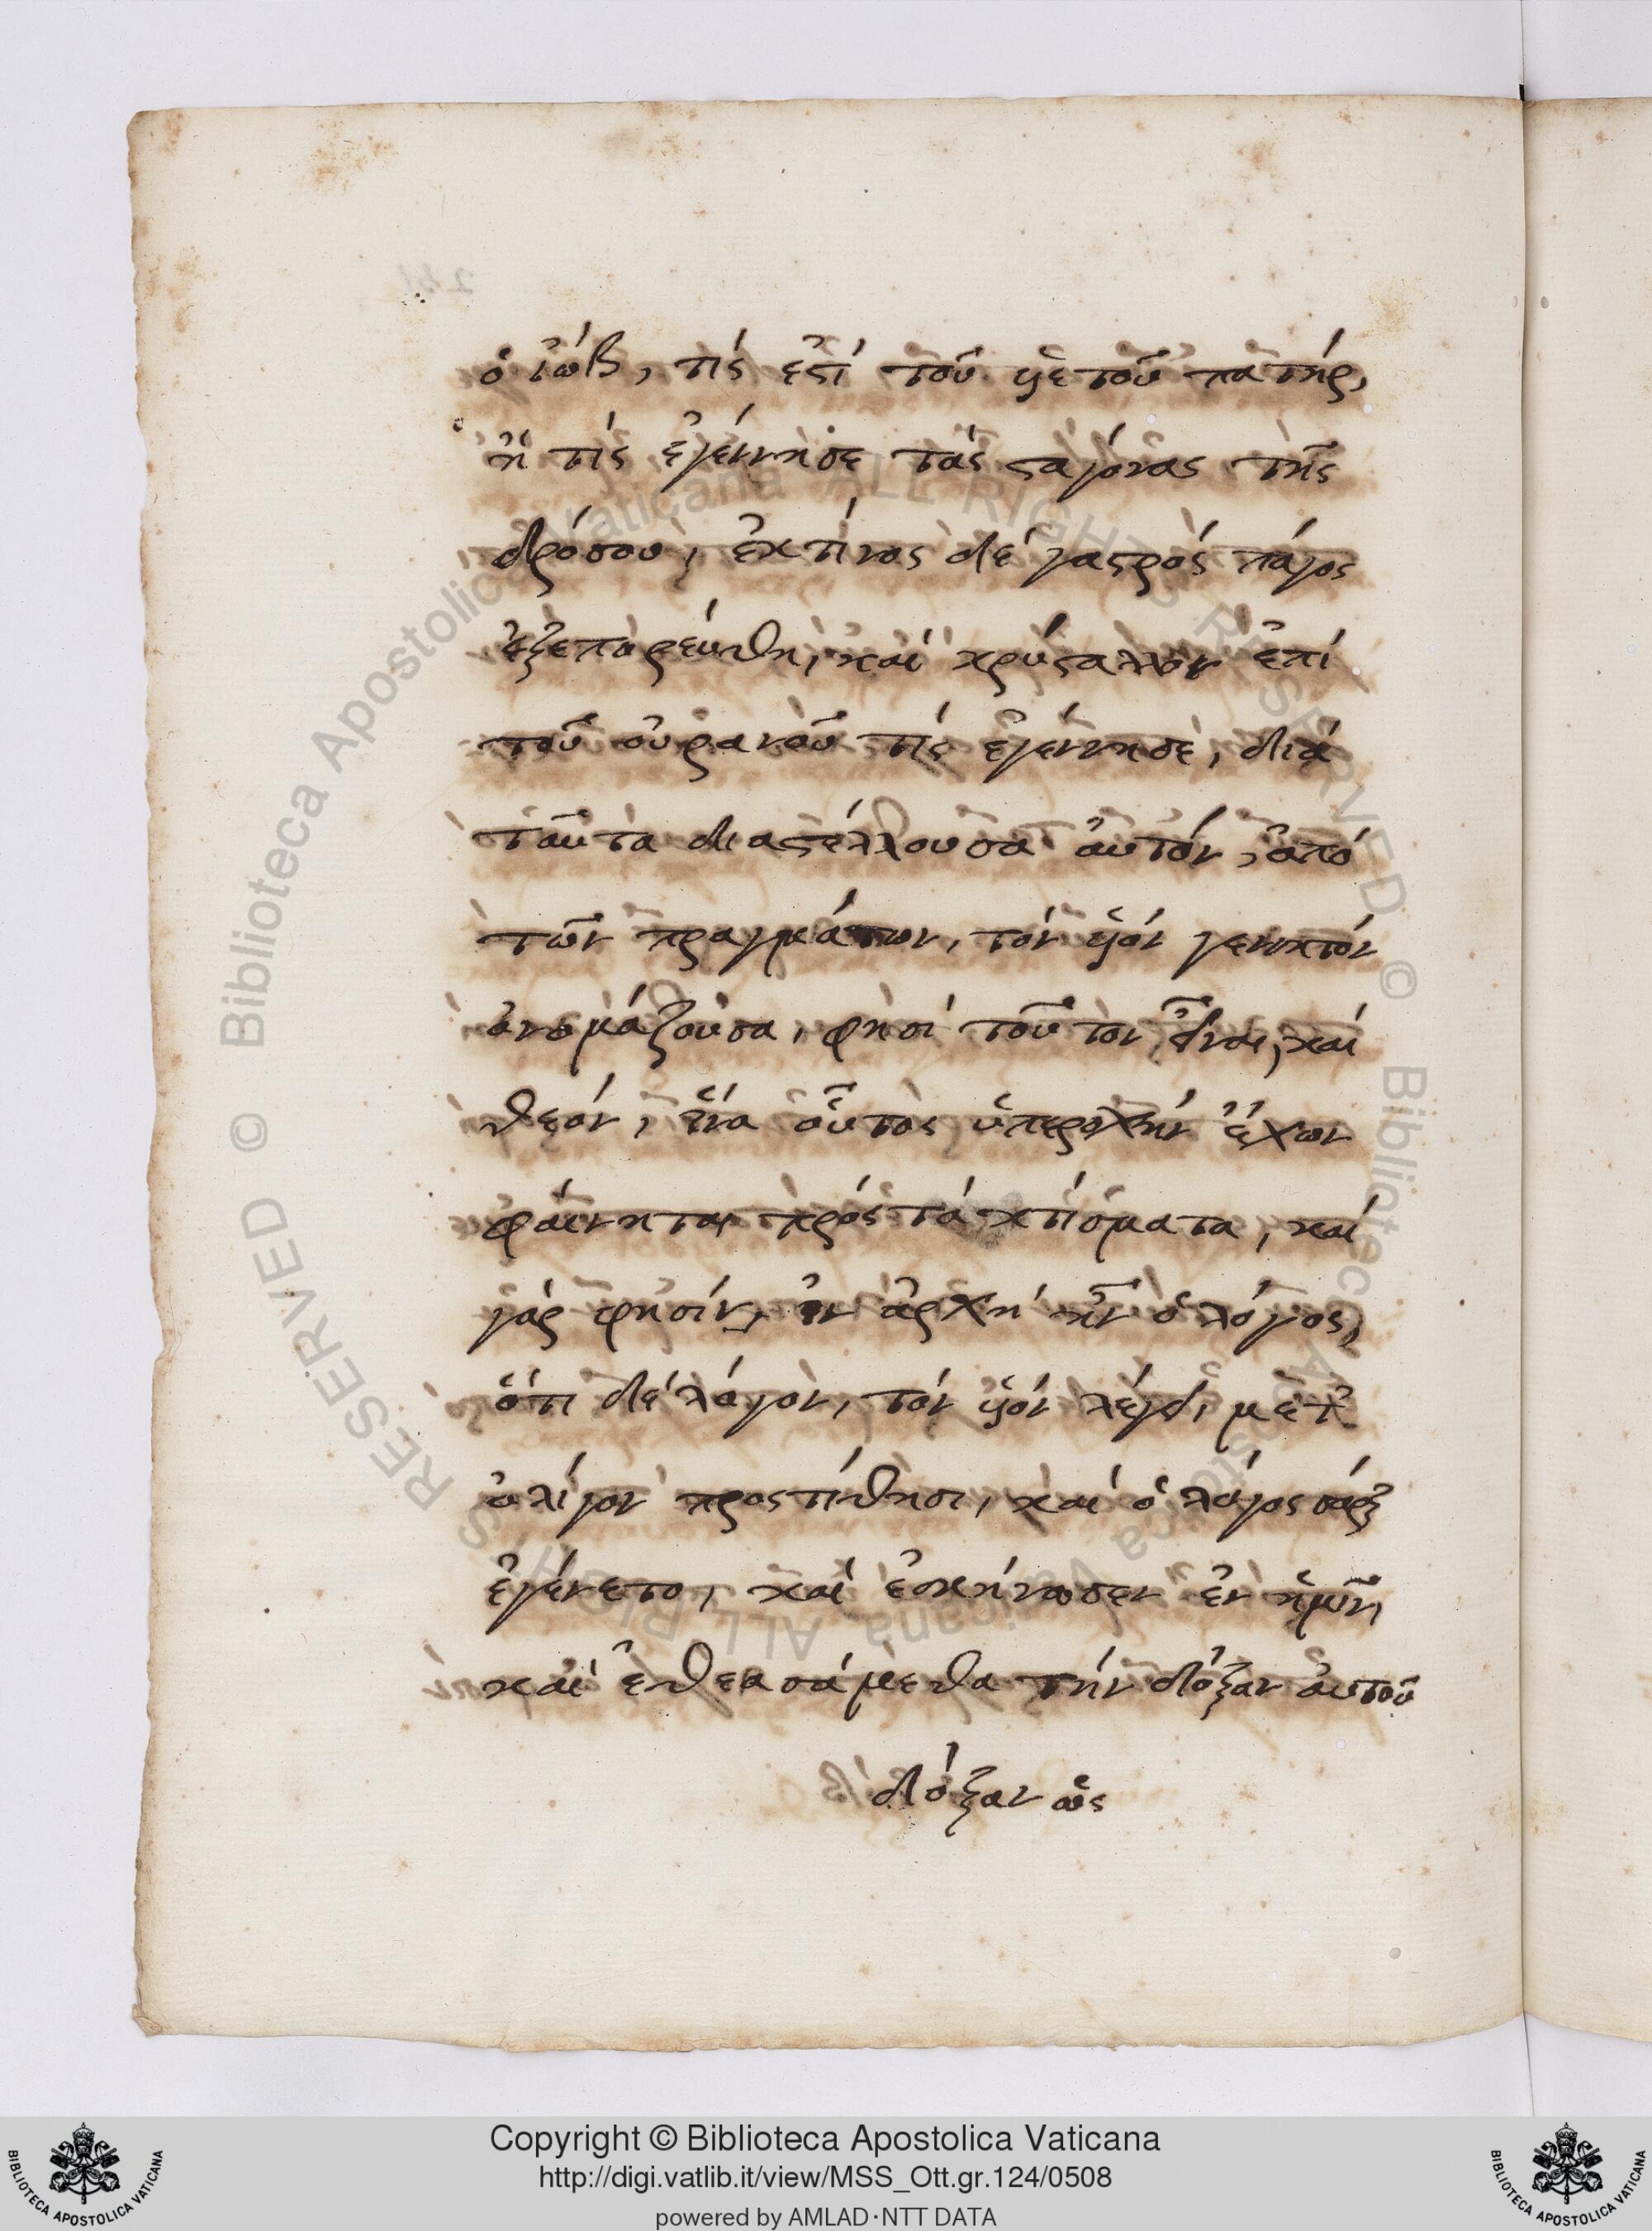 ὁ ἰώβ, τίς ἐστὶ τοῦ ὑετοῦ πατήρ,
ἢ τίς ἐγέννησε τὰς σταγόνας τῆς
δρόσου, ἐκ τίνος δὲ γαστρὸς πάγος
ἐξεπορεύθη, καὶ κρύσταλλον ἐπὶ
τοῦ οὐρανοῦ τίς ἐγέννησε, διὰ
ταῦτα διαστέλλουσα αὐτὸν, ἀπὸ
τῶν πραγμάτων, τὸν υἱὸν γεννητὸν
ὀνομάζουσα, φησὶ τοῦτον εἶναι, καὶ
θεόν, ἵνα οὗτος ὑπεροχὴν ἔχων
φαίνηται πρὸς τὰ κτίσματα, καὶ
γάρ φησίν, ἐν ἀρχῇ ἦν ὁ λόγος,
ὅτι δὲ λόγον, τὸν υἱὸν λέγει, μετ'
ὀλίγον προστίθησι, καὶ ὁ λόγος σὰρξ
ἐγένετο, καὶ ἐσκήνωσεν ἐν ἡμῖν,
καὶ ἐθεασάμεθα τὴν δόξαν αὐτοῦ
δόξαν ὡς
Copyright © Biblioteca Apostolica Vaticana
http://digi.vatlib.it/view/MSS_Ott.gr.124/0508
powered by AMLAD·NTT DATA
BIBLIOTECA APOSTOLICA VATICANA
BIBLIOTECA APOSTOLICA VATICANA
© Biblioteca Apostolica Vaticana ALL RIGHTS RESERVED
© Biblioteca Apostolica Vaticana ALL RIGHTS RESERVED